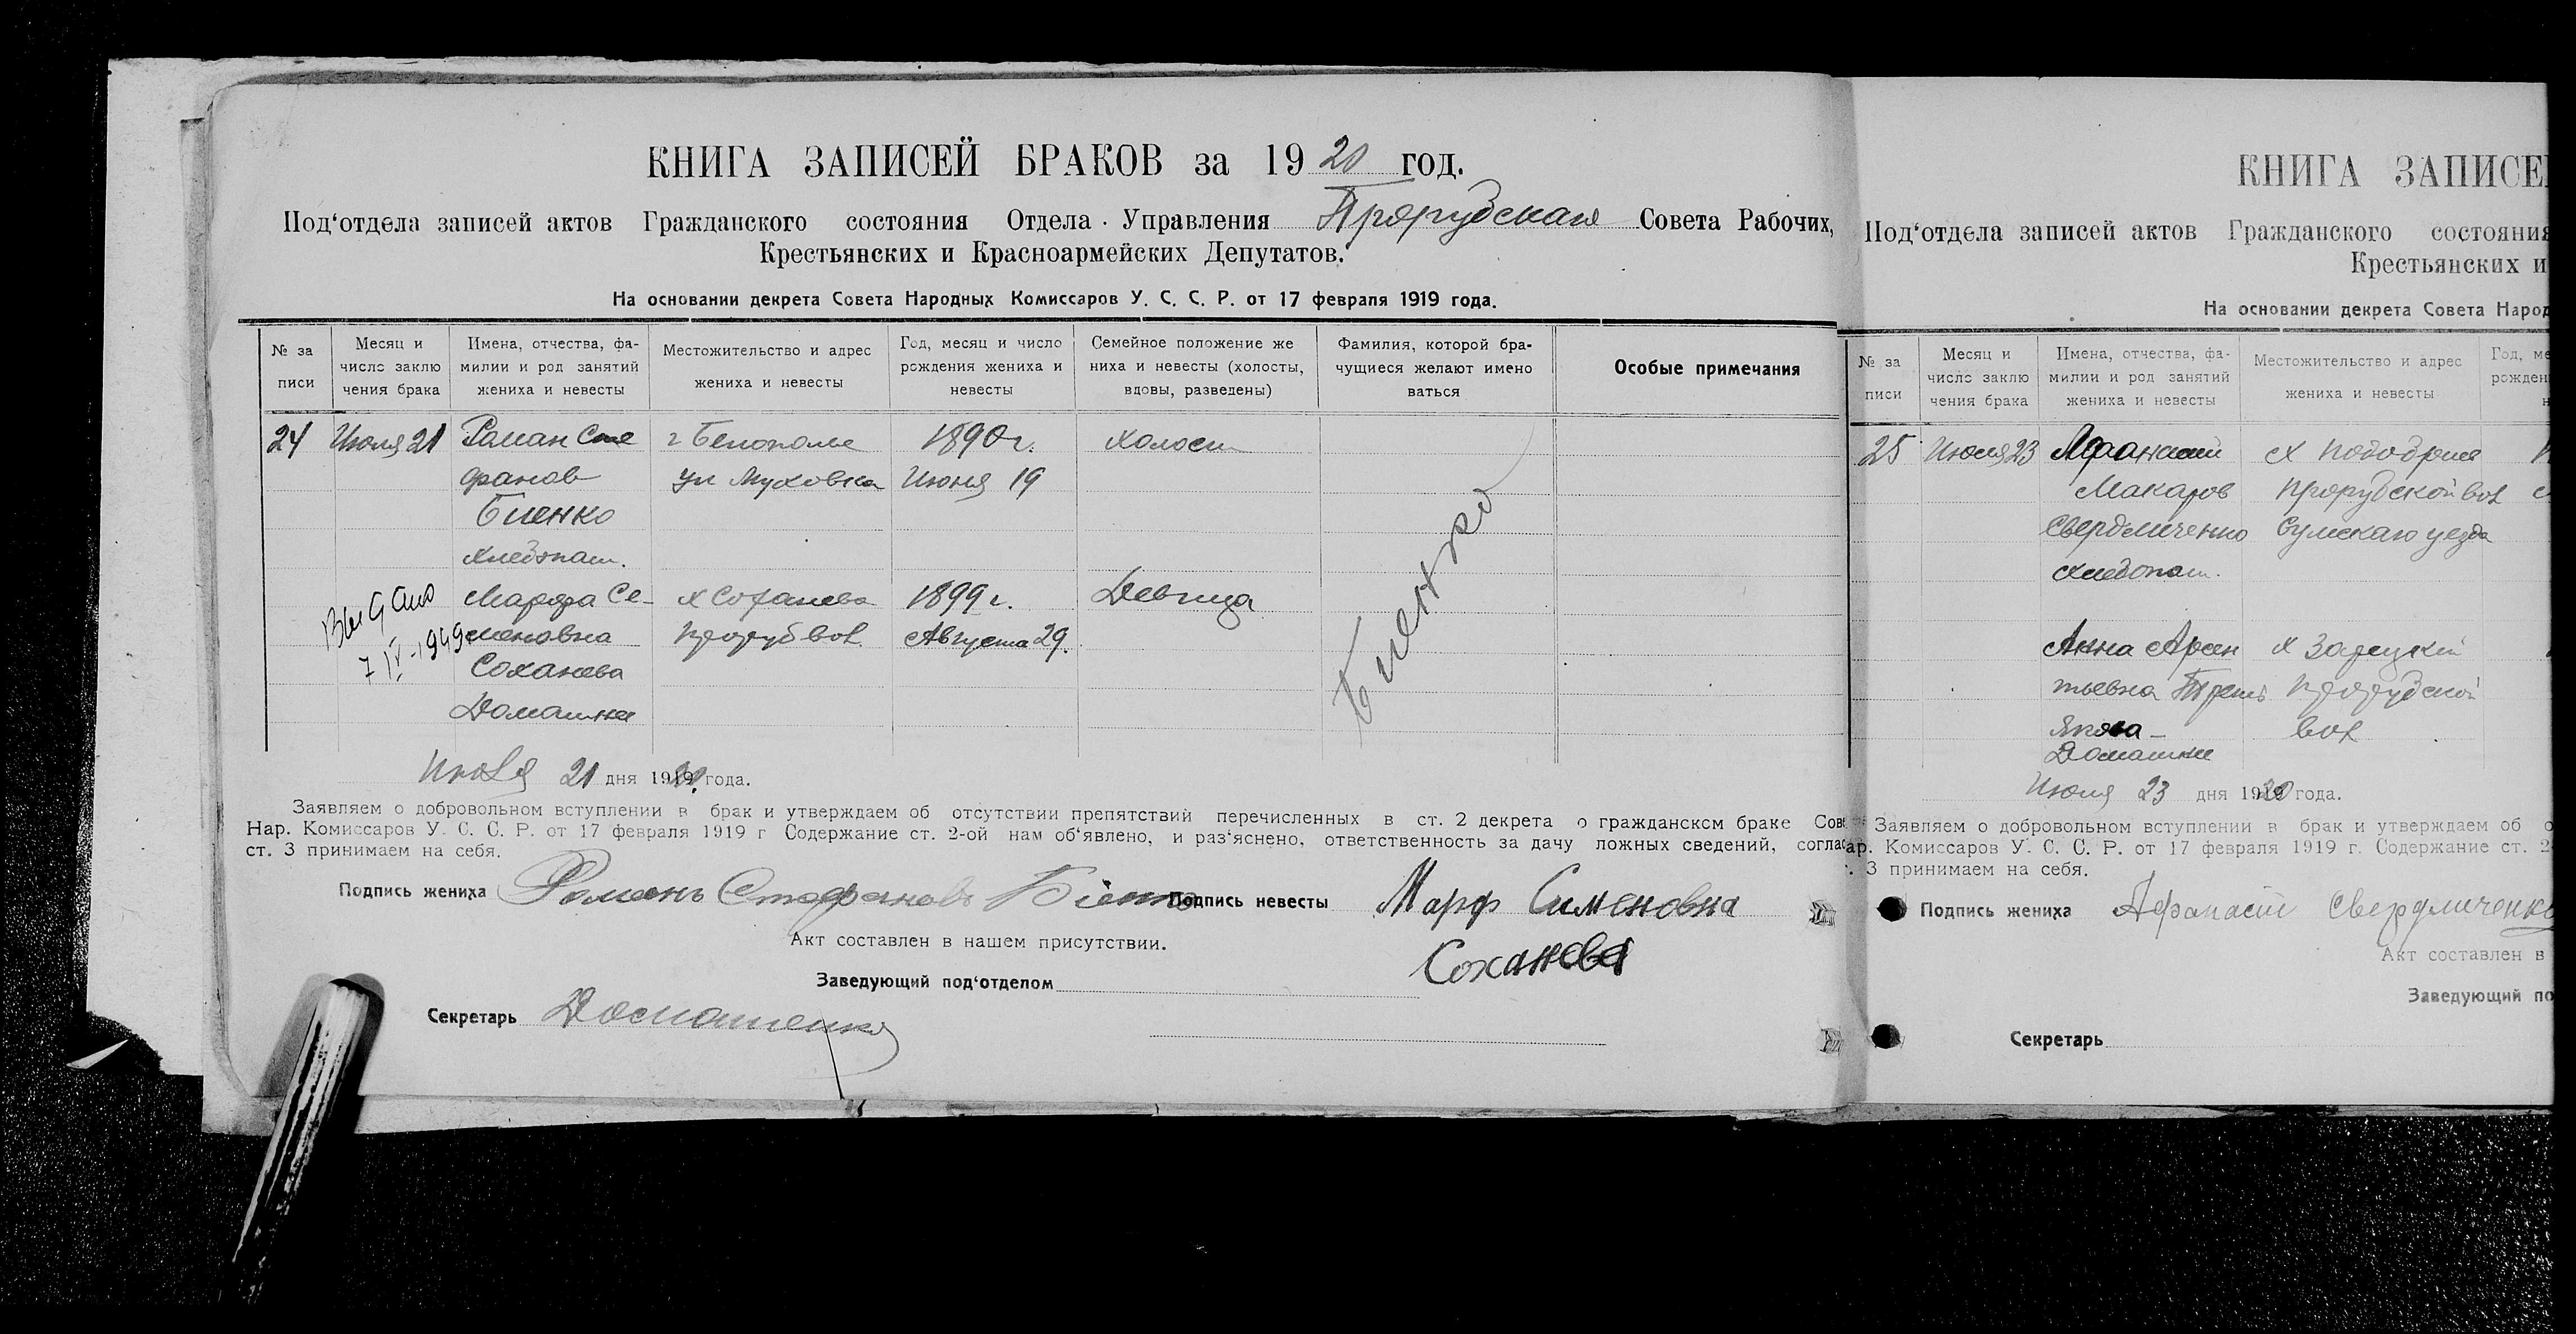 КНИГА ЗАПИСЕЙ БРАКОВ за 1920 год.
Под'отдела записей актов Гражданского состояния Отдела Управления Прорубская Совета Рабочих,
Крестьянских и Красноармейских Депутатов.
На основании декрета Совета Народных Комиссаров У. С. С. Р. от 17 февраля 1919 года.
№ за писи
Месяц и число заклю чения брака
Имена, отчества, фа- милии и род занятий жениха и невесты
Местожительство и адрес жениха и невесты
Год, месяц и число рождения жениха и невесты
Семейное положение же ниха и невесты (холосты, вдовы, разведены)
Фамилия, которой бра- чущиеся желают имено ваться
Особые примечания
24 Июля 21 Роман Сте г Белополе 1890 г. холост
фанов ул Муховка Июня 19
Биенко
хлебопаш.
Марфа Се- х Соханева 1899 г. Девица
меновна Проруб вол. Августа 29.
Соханева
Домашнее
Биенко
Выдано
7/IV-1949г
Июля 21 дня 1920 года.
Заявляем о добровольном вступлении в брак и утверждаем об отсутствии препятствий перечисленных в ст. 2 декрета о гражданском браке Сов
Нар. Комиссаров У. С. С. Р. от 17 февраля 1919 г Содержание ст. 2-ой нам об'явлено, и раз'яснено, ответственность за дачу ложных сведений, соглас
ст. 3 принимаем на себя.
Подпись жениха Романъ Стефановъ Біенко Подпись невесты Марф Сименовна
Соханева
Акт составлен в нашем присутствии.
Заведующий под'отделом
Секретарь Домашенко
КНИГА ЗАПИСЕ
Под'отдела записей актов Гражданского состояния
Крестьянских и
На основании декрета Совета Народ
№ за писи
Месяц и число заклю чения брака
Имена, отчества, фа- милии и род занятий жениха и невесты
Местожительство и адрес жениха и невесты
Год, ме рожден
25 Июля 23 Афанасий х
Макаров Прорубской вол
Свердличенко Сумскаго уезда
хлебопаш.
Анна Арсен х Зарецкий
тьевна Прорубской
вол
Домашнее
Июля 23 дня 1920 года.
Заявляем о добровольном вступлении в брак и утверждаем об о
ар. Комиссаров У. С. С. Р. от 17 февраля 1919 г. Содержание ст. 2
. 3 принимаем на себя.
Подпись жениха Афанасий Свердличенко
Акт составлен в
Заведующий по
Секретарь